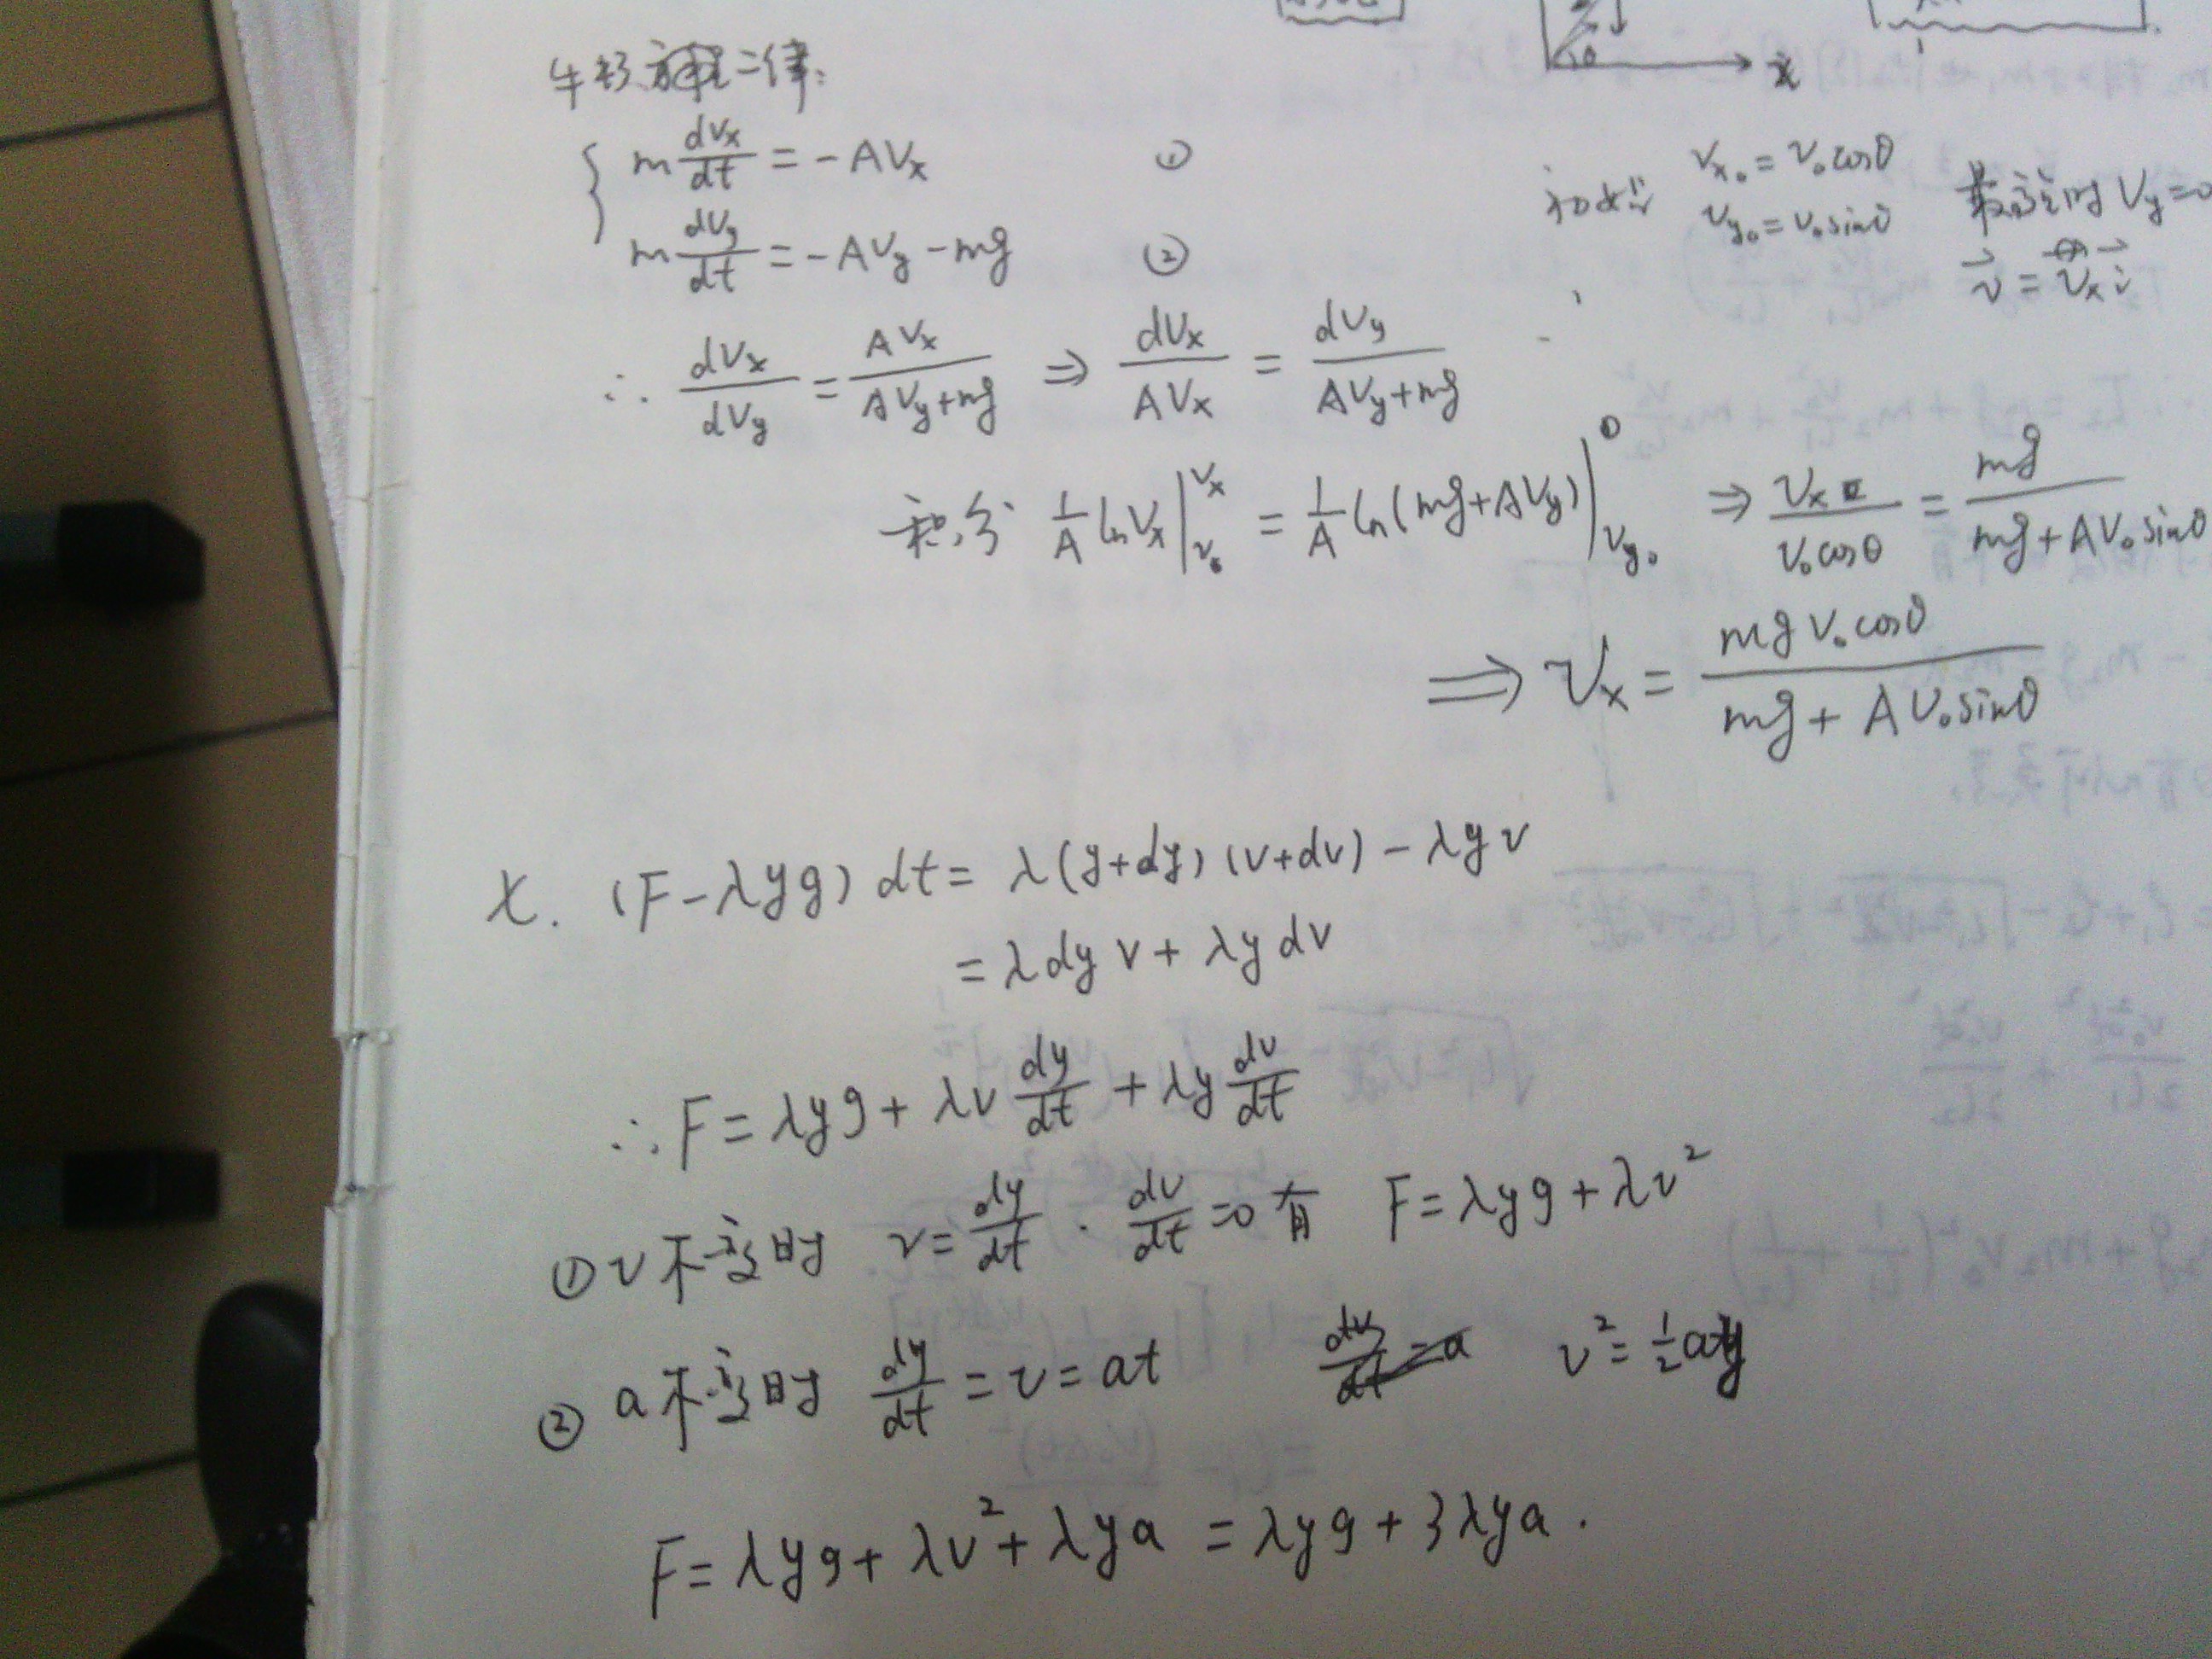 牛顿二律:
m dVx/dt = -AVx ①
初始 Vx₀ = V₀cosθ
Vy₀ = V₀sinθ
最高时 Vy=0
m dVy/dt = -AVy - mg ②
v⃗ = Vx i⃗
∴ dVx/dVy = AVx/(AVy+mg) ⇒ dVx/AVx = dVy/(AVy+mg)
积分 1/A lnVx |_{V₀}^{Vx} = 1/A ln(mg+AVy) |_{Vy₀}^{0} ⇒ Vx/(V₀cosθ) = mg/(mg+AV₀sinθ)
⟹ Vx = mgV₀cosθ/(mg+AV₀sinθ)
X. (F-λyg) dt = λ(y+dy)(v+dv) - λyv
= λdy v + λy dv
∴ F = λyg + λv dy/dt + λy dv/dt
① v不变时 v = dy/dt · dv/dt = 0 有 F = λyg + λv²
② a不变时 dy/dt = v = at v² = ½ay
F = λyg + λv² + λya = λyg + 3λya.